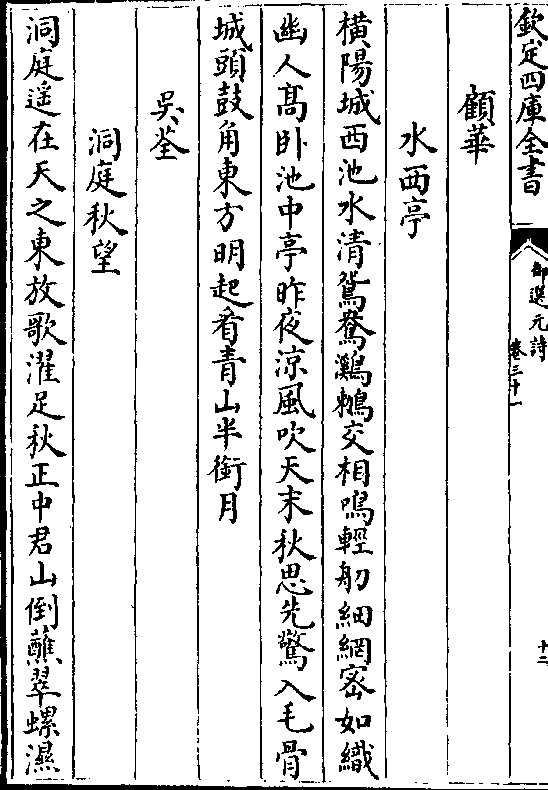 欽定四庫全書
御選元詩
卷三十一
十二
顧華
水西亭
橫陽城西池水清鴛鴦鸂鶒交相鳴輕舠細網密如織
幽人高卧池中亭昨夜涼風吹天末秋思先驚入毛骨
城頭鼓角東方明起看青山半銜月
吳荃
洞庭秋望
洞庭遥在天之東放歌濯足秋正中君山倒蘸翠螺濕